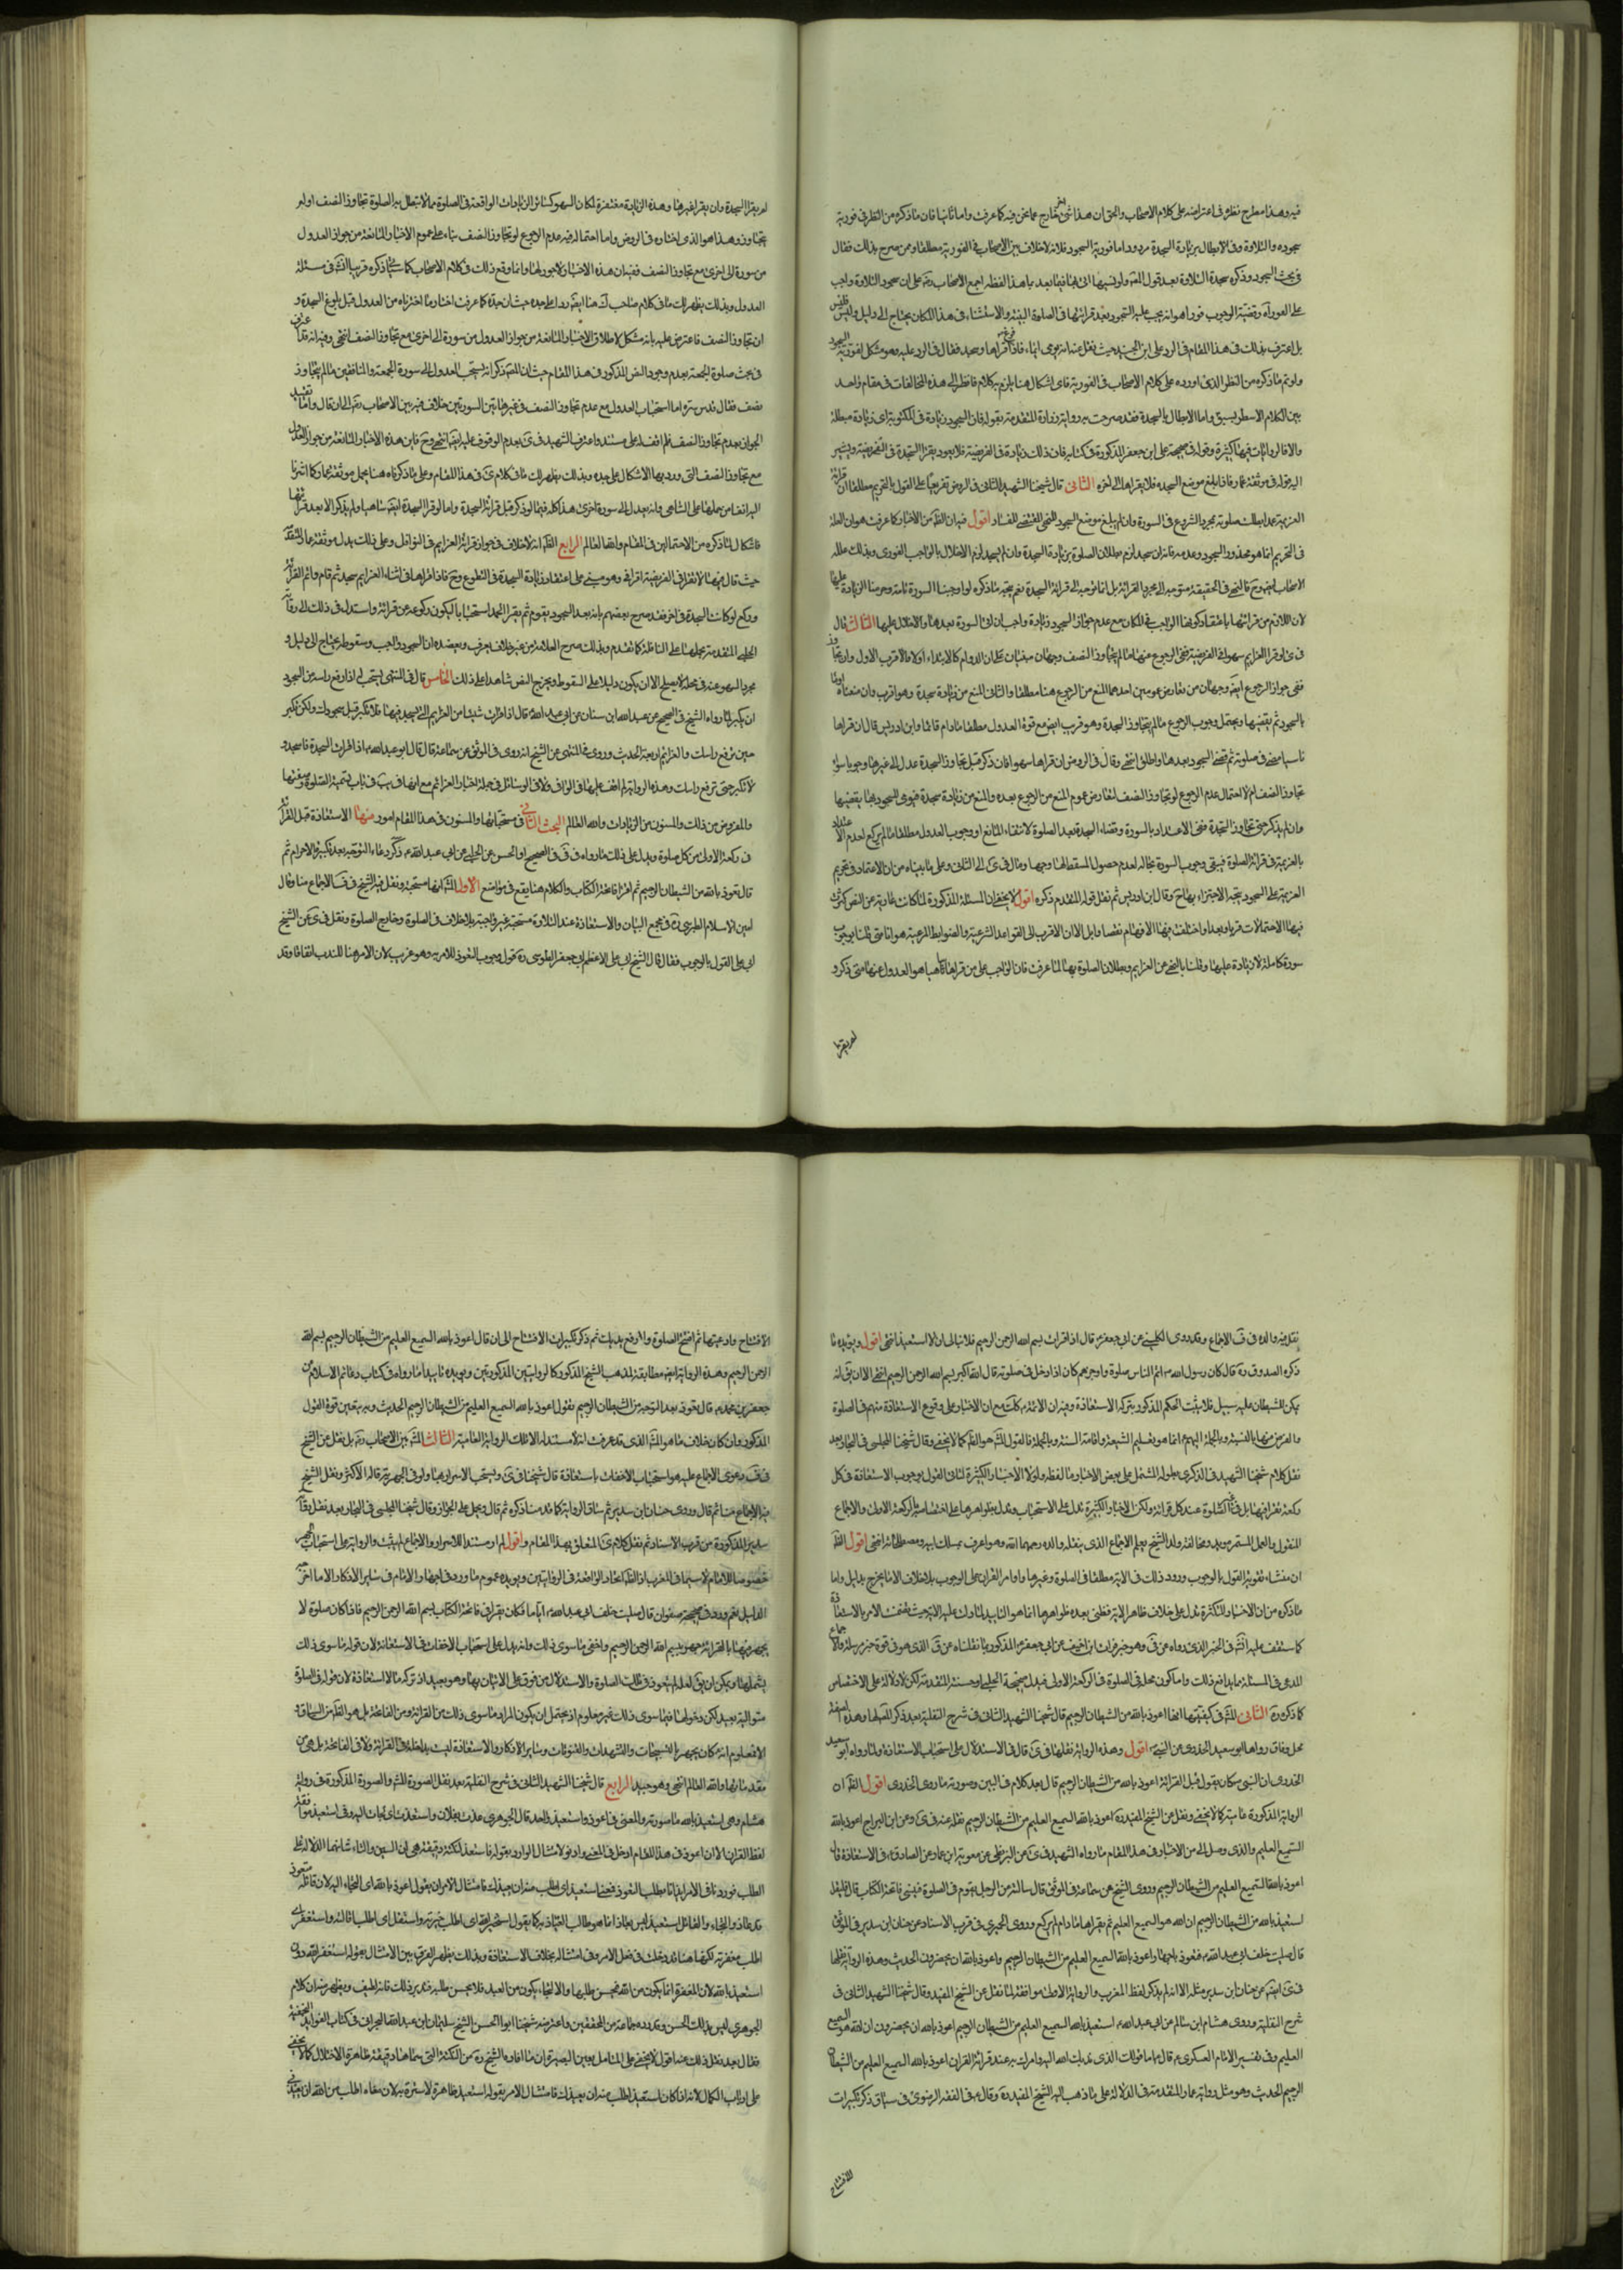 فيه وهذا مطرح نظره في اعتراضه على كلام الاصحاب والحق ان هذا شئ خارج عما نحن فيه كما عرفت واما ثانيا فان ما ذكره من النظر في فورية
سجوده والتلاوة وفي الابطال بزيادة السجدة مردود اما فورية السجود فلانه لا خلاف بين الاصحاب في الفورية مطلقا وممن صرح بذلك فقال
في بحث السجود وذكره سجدة التلاوة بعد قول المصنف ولو نسيها اتى بها فيما بعد ما هذا لفظه اجمع الاصحاب رضي على ان سجود التلاوة واجب
على الفور آه وقضية الوجوب فورا هو انه يجب عليه السجود بعد قرائتها في الصلوة البتة والاستثناء في هذا المكان يحتاج الى دليل وليس فليس
بل اعترف بذلك في هذا المقام في الرد على ابن الجنيد حيث نقل عنه انه يومى ايماء فاذا فرغ قرأها وسجد فقال في الرد عليه وهو مشكل لفورية السجود
ولو تم ما ذكره من النظر الذي اورده على كلام الاصحاب في الفورية فاى اشكال هنا يلزم به كلام فانظر الى هذه المخالفات في مقام واحد
بين الكلام الاسطر يسير واما الابطال بالسجدة فقد صرحت به رواية زرارة المتقدمة بقوله فان السجود زيادة في المكتوبة اى زيادة مبطلة
والا فالروايات فيها كثيرة وقوله في صحيحة على ابن جعفر المذكورة في كتابه فان ذلك زيادة في الفريضة فلا يعود يقرأ السجدة في الفريضة ويشير
اليه قوله في موثقة عمار فاذا بلغ موضع السجدة فلا يقرأها الى اخره الثانى قال شيخنا الشهيد الثاني في الروض تفريعا على القول بالتحريم مطلقا ان قرأ
العزيمة عمدا بطلت صلوته بمجرد الشروع في السورة وان لم يبلغ موضع السجود للنهى المقتضى للفساد اقول فيه ان الظاهر من الاخبار كما عرفت هو ان العلة
في التحريم انما هو محذور السجود وعدمه فانه ان سجد لزم بطلان الصلوة بزيادة السجدة وان لم يسجد لزم الاخلال بالواجب الفورى وبذلك علله
الاصحاب ايضا وح فالنهى في الحقيقة متوجه الى مجرد القرائة بل انما توجه الى قرائة السجدة نعم يتجه ما ذكره لو اوجبنا السورة تامة وحرمنا الزيادة عليها
لان اللازم من قرائتها باعتقاد كونها الواجب في المكان مع عدم جواز السجود زيادة واجب ان اتى السورة بعدها والا فتدل عليها الثالث قال
في ى لو قرأ العزايم سهوا في الفريضة ففى الرجوع عنها ما لم يتجاوز النصف وجهان مبنيان على ان الدوام كالابتداء اولا والاقرب الاول وان تجاوز
ففى جواز الرجوع ايضا وجهان من تعارض عمومين احدهما المنع من الرجوع هنا مطلقا والثاني المنع من زيادة سجدة وهو اقرب وان منعناه اومأ
بالسجود ثم يقضيها ويحتمل وجوب الرجوع ما لم يتجاوز السجدة وهو قريب ايضا مع قوة العدول مطلقا ما دام قائما وابن ادريس قال ان قرأها
ناسيا مضى في صلوته ثم قضى السجود بعدها واطلق انتهى وقال في الروض ان قرأها سهوا فان ذكر قبل تجاوز السجدة عدل الى غيرها وجوبا سواء
تجاوز النصف ام لا لاحتمال عدم الرجوع لو تجاوز النصف لتعارض عموم المنع من الرجوع بعده والمنع من زيادة سجدة فيومى للسجود بها ثم يقضيها
وان لم يذكر حتى تجاوز السجدة ففى الاعتداد بالسورة وقضاء السجدة بعد الصلوة لانتفاء المانع او وجوب العدول مطلقا ما لم يركع لعدم الاعتداد
بالعزيمة في قرائة الصلوة فيبقى وجوب السورة بحاله لعدم حصول المسقط لها وجهان ومال في ى الى الثاني وعلى ما بيناه من ان الاعتماد في تحريم
العزيمة على السجود يتجه الاجتزاء بها ح وقال ابن ادريس ثم نقل قوله المتقدم ذكره اقول لا يخفى ان المسئلة المذكورة لما كانت عارية عن النص كثرت
فيها الاحتمالات قربا وبعدا واختلفت فيها الافهام نقضا وابراما الا ان الاقرب الى القواعد الشرعية والضوابط المرعية هو انا متى قلنا بوجوب
سورة كاملة لا زيادة عليها وقلنا بالنهى عن العزايم وبطلان الصلوة بها لما عرفت فان الواجب على من قرأها ساهيا هو العدول عنها متى ذكر و
لم يقرأ
لم يقرأ السجدة وان يقرأ غيرها وهذه الزيادة مغتفرة لمكان السهو كسائر الزيادات الواقعة في الصلوة مما لا تبطل به الصلوة تجاوز النصف او لم
يتجاوزه وهذا هو الذى اختاره في الروض واما احتماله فيه عدم الرجوع لو تجاوز النصف بناء على عموم الاخبار المانعة من جواز العدول
من سورة الى اخرى مع تجاوز النصف ففيه ان هذه الاخبار لا وجود لها وانما وقع ذلك في كلام الاصحاب كما سيأتى ذكره قريبا في مسئلة
العدول وبذلك يظهر لك ما في كلام صاحب ك هنا ايضا
ان تجاوز النصف فاعترض عليه بانه مشكل لاطلاق الاخبار المانعة من جواز العدول من سورة الى اخرى مع تجاوز النصف انتهى وفيه انه قد اعترف
في بحث صلوة الجمعة بعدم وجود النص المذكور في هذا المقام حيث ان المصنف ذكر انه يستحب العدول الى سورة الجمعة والمنافقين ما لم يتجاوز
نصف فقال قدس سره اما استحباب العدول مع عدم تجاوز النصف في غير هاتين السورتين فلا خلاف فيه بين الاصحاب الى ان قال واما تقييد
الجواز بعدم تجاوز النصف فلم اقف له على مستند واعترف الشهيد في ى بعدم الوقوف عليه ايضا انتهى وح فاين هذه الاخبار المانعة من جواز العدول
مع تجاوز النصف التى ورد بها الاشكال على جده وبذلك يظهر لك ما في كلام ى في هذا المقام وعلى ما ذكرناه هنا يحمل موثقة عمار كما اشرنا
اليه انفا من حملها على الساهى وانه يعدل الى سورة اخرى هذا كله فيما لو ذكر قبل قرائة السجدة واما لو قرأ السجدة ايضا ساهيا ولم يذكر الا بعد قرائتها
فاشكال لما ذكره من الاحتمالين في المقام والله العالم الرابع الظاهر انه لا خلاف في جواز قرائة العزايم في النوافل وعلى ذلك يدل موثقة سماعة المتقدمة
حيث قال فيها لا تقرأ في الفريضة اقرأ في التطوع وح فاذا قرأها في اثناء العزايم سجد ثم قام واتم القرائة
وركع ولو كانت السجدة في اخره فقد صرح بعضهم بانه بعد السجود يقوم ثم يقرأ الحمد استحبابا ليكون ركوعه عن قرائة واستدل في ذلك الى رواية
الحلبى المتقدمة بحملها على النافلة كما تقدم وبذلك صرح العلامة من غير خلاف يعرف ويعضده ان السجود واجب وسقوطه يحتاج الى دليل و
مجرد السهو عنه في محله لا يصلح لان يكون دليلا على السقوط وصحيح النص شاهد على ذلك الخامس قال في المنتهى يستحب اذا رفع رأسه من السجود
ان يكبر لما رواه الشيخ في الصحيح عن عبد الله ابن سنان عن ابى عبد الله قال اذا قرأت شيئا من العزايم التى يسجد فيها فلا تكبر قبل سجودك ولكن تكبر
حين ترفع رأسك والعزايم اربعة الحديث وروى في المنتهى عن الشيخ انه روى في الموثق عن سماعة قال قال ابو عبد الله اذا قرأت السجدة فاسجد و
لا تكبر حتى ترفع رأسك وهذه الرواية لم اقف عليها في الوافى ولا في الوسائل في جملة اخبار العزائم
والمفروض من ذلك والمسنون من الزيادات والله العالم البحث الثانى في مستحباتها والمسنون في هذا المقام امور منها الاستعاذة قبل القرائة
في ركعة الاولى من كل صلوة ويدل على ذلك ما رواه في الصحيح او الحسن عن الحلبى عن ابى عبد الله ع ذكر دعاء التوجه بعد تكبيرة الاحرام ثم
قال تعوذ بالله من الشيطان الرجيم ثم اقرأ فاتحة الكتاب والكلام هنا يقع في مواضع الاول المشهور انها مستحبة ونقل فيه الشيخ في ف الاجماع منا وقال
امين الاسلام الطبرسى ره في مجمع البيان والاستعاذة عند التلاوة مستحبة غير واجبة بلا خلاف في الصلوة وخارج الصلوة ونقل في ى عن الشيخ
ابى على القول بالوجوب فقال قال الشيخ ابى على الاعظم ابى جعفر الطوسى ره قول وجوب التعوذ للامر به وهو غريب لان الامر هنا للندب اتفاقا وقد
نقل فيه والده في ف الاجماع وقد روى الكلينى عن ابى جعفر قال اذا قرأت بسم الله الرحمن الرحيم فلا تبالى ان لا تستعيذ انتهى اقول ويؤيده ما
ذكره الصدوق ره قال كان رسول الله ص اتم الناس صلوة واوجزهم كان اذا دخل في صلوته قال الله اكبر بسم الله الرحمن الرحيم انتهى الا ان يق انه لم
يكن للشيطان عليه سبيل فلا يثبت الحكم المذكور بتركه الاستعاذة وفيه ان الائمة كك مع ان الاخبار على وقوع الاستعاذة منهم في الصلوة
والغرض منها بالنسبة وبالجملة اليهم انما هو تعليم الشيعة واقامة السنة وبالجملة فالقول المشهور هو الظاهر كما لا يخفى وقال شيخنا المجلسى في البحار بعد
نقل كلام شيخنا الشهيد في الذكرى بطوله المشتمل على بعض الاخبار ما لفظه ولولا الاخبار الكثيرة لتأتى القول بوجوب الاستعاذة في كل
ركعة يقرأ فيها بل في غير الصلوة عند كل قرائة ولكن الاخبار الكثيرة تدل على الاستحباب وتدل بظواهرها على اختصاصه بالركعة الاولى والاجماع
المنقول والعمل المستمر مؤيد ومخالفة ولد الشيخ يعلم الاجماع الذى ينقله والده رحمهما الله وهو اعرف بمسلك ابيه ومصطلحاته انتهى اقول الظاهر
ان منشاء تقوية القول بالوجوب ورود ذلك في الاية مطلقا في الصلوة وغيرها واوامر القرآن على الوجوب بلا خلاف الا ما يخرج بدليل واما
ما ذكره من ان الاخبار الكثيرة تدل على خلاف ظاهر الاية فظنى بعده ظواهرها انما هو التأييد لما دلت عليه الاية حيث تضمنت الامر بالاستعاذة
كما ستقف عليه في الخبر الذى رواه عن ق وهو خبر فرات بن احنف عن ابى جعفر المذكور بما نقلناه عن ق الذى هو في قوة خبر مرسل والاجماع
المدعى في المسئلة ما يدافع ذلك واما كون محلها في الصلوة في الركعة الاولى فيدل صحيحة الحلبى او حسنته المتقدمة لكن لا دلالة على الاختصاص
كما ذكره ره الثانى المشهور في كيفيتها انها اعوذ بالله من الشيطان الرجيم قال شيخنا الشهيد الثانى في شرح النفلية بعد ذكر المسئلة وهذه الصيغة
محل وفاق رواها ابو سعيد الخدرى عن النبى ص اقول وهذه الرواية نقلها في ى قال في الاستدلال على استحباب الاستعاذة ولما رواه ابو سعيد
الخدرى ان النبى ص كان يقول قبل القرائة اعوذ بالله من الشيطان الرجيم قال بعد كلام في البين وصورته ما روى الخدرى اقول الظاهر ان
الرواية المذكورة عامية كما لا يخفى ونقل عن الشيخ المفيد ره اعوذ بالله السميع العليم من الشيطان الرجيم نقله عنه في ى وعن ابن البراج اعوذ بالله
السميع العليم والذى وصل الى من الاخبار في هذا المقام ما رواه الشهيد في ى عن البزنطى عن معوية ابن عمار عن الصادق ع في الاستعاذة قال
اعوذ بالله السميع العليم من الشيطان الرجيم وروى الشيخ عن سماعة في الموثق قال سالته عن الرجل يقوم في الصلوة فينسى فاتحة الكتاب قال فليقل
استعيذ بالله من الشيطان الرجيم ان الله هو السميع العليم ثم يقرأها ما دام لم يركع وروى الحميرى في قرب الاسناد عن حنان ابن سدير في الموثق
قال صليت خلف ابى عبد الله ع فتعوذ باجهار اعوذ بالله السميع العليم من الشيطان الرجيم واعوذ بالله ان يحضرون الحديث وهذه الرواية نقلها
في ى ايضا عن حنان ابن سدير مثله الا انه لم يذكر لفظ المغرب والرواية الاولى موافقة لما نقل عن الشيخ المفيد وقال شيخنا الشهيد الثانى في
شرح النفلية وروى هشام ابن سالم عن ابى عبد الله ع استعيذ بالله السميع العليم من الشيطان الرجيم اعوذ بالله ان يحضرون ان الله هو السميع
العليم وفى تفسير الامام العسكرى ع قال اما قولك الذى ندبك الله اليه وامرك به عند قرائة القرآن اعوذ بالله السميع العليم من الشيطان
الرجيم الحديث وهو مثل رواية عمار المتقدمة في الدلالة على ما ذهب اليه الشيخ المفيد ره وقال ع في الفقه الرضوى في سياق ذكر تكبيرات
الافتتاح
الافتتاح وادعيتها ثم افتتح الصلوة وارفع يديك ثم ذكر تكبيرات الافتتاح الى ان قال اعوذ بالله السميع العليم من الشيطان الرجيم بسم الله
الرحمن الرحيم وهذه الرواية ايضا مطابقة لمذهب الشيخ المذكور كالروايتين المذكورتين ويؤيده تأييدا ما رواه في كتاب دعائم الاسلام عن
جعفر بن محمد ع قال تعوذ بعد التوجه من الشيطان الرجيم تقول اعوذ بالله السميع العليم من الشيطان الرجيم الحديث وبه يتعين قوة القول
المذكور وان كان خلاف ما هو المشهور الذى قد عرفت انه لا مستند له الا تلك الرواية العامية الثالث المشهور بين الاصحاب رضي بل نقل عن الشيخ
في ف دعوى الاجماع عليه هو استحباب الاخفات بالاستعاذة قال شيخنا في ى ويستحب الاسرار بها ولو في الجهرية قاله الاكثر ونقل الشيخ
فيه الاجماع منا ثم قال وروى حنان ابن سدير ثم ساق الرواية كما قدمنا ذكره ثم قال ويحمل على الجواز وقال شيخنا المجلسى في البحار بعد نقل رواية
سدير المذكورة من قرب الاسناد ثم نقل كلام ى المتعلق بهذا المقام واقول لم ار مستندا للاسرار والاجماع لم يثبت والرواية على استحباب الجهر
خصوصا للامام لا سيما في المغرب اذ الظاهر اتحاد الواقعة في الروايتين ويؤيده عموم ما ورد في اجهار الامام في سائر الاذكار الا ما اخرجه
الدليل نعم ورد في صحيحة صفوان قال صليت خلف ابى عبد الله ع اياما فكان يقرأ في فاتحة الكتاب بسم الله الرحمن الرحيم فاذا كان صلوة لا
يجهر فيها بالقرائة جهر ببسم الله الرحمن الرحيم واخفى ما سوى ذلك وانه يدل على استحباب الاخفات في الاستعاذة لان قوله ما سوى ذلك
يشملها ويمكن ان يق لعله لم يتعوذ في تلك الصلوة والاستدلال موقوف على الاتيان بها وهو بعيد اذ تركه الاستعاذة
متوالية بعيد لكن دخولها فيما سوى ذلك غير معلوم اذ يحتمل ان يكون المراد ما سوى ذلك من القرائة ومن الفاتحة بل هو الظاهر من السياق و
الا فمعلوم انه كان يجهر بالتسبيحات والتشهدات والقنوتات وساير الاذكار والاستعاذة ليست بداخلة في القرائة ولا في الفاتحة بل هى من
مقدماتها والله العالم انتهى وهو جيد الرابع قال شيخنا الشهيد الثانى في شرح النفلية بعد نقل الصورة المشهورة والصورة المذكورة في رواية
هشام وهى استعيذ بالله ما صورته والمعنى في اعوذ واستعيذ واحد قال الجوهرى عذت بفلان واستعذت به اى لجأت اليه وفى استعيذ موافقة
لفظ القرآن الا ان اعوذ في هذا المقام ادخل في المعنى واوفق لامتثال الوارد بقوله فاستعذ لنكتة دقيقة هى ان السين والتاء شانهما الدلالة على
الطلب فوردتا في الامر ايذانا بطلب التعوذ فمعنى استعيذ اى اطلب منه ان يعيذك فامتثال الامر ان يقول اعوذ بالله اى التجأ اليه لان قائله متعوذ
قد عاذ والتجأ والقائل استعيذ ليس بعائذ انما هو طالب العياذ به كما يقول استخير الله اى اطلب خيرته واستقيله اى اطلب اقالته واستغفره اى
اطلب مغفرته لكنها هنا قد دخلت في فعل الامر وفى امتثاله بخلاف الاستعاذة وبذلك يظهر الفرق بين الامتثال بقوله استغفر الله دون
استعيذ بالله لان المغفرة انما يكون من الله فيحسن طلبها والالتجاء يكون من العبد فلا يحسن طلبه فتدبر ذلك فانه لطيف ويظهر منه ان كلام
الجوهرى ليس بذلك الحسن وقد رده جماعة من المحققين واعترضه شيخنا ابو الحسن الشيخ سليمان ابن عبد الله البحرانى في كتاب الفوايد النجفية
فقال بعد نقل ذلك عنه اقول لا يخفى على المتأمل بعين البصيرة ان ما افاده الشيخ ره من النكتة التى سماها دقيقة ظاهرة الاختلال كما لا يخفى
على اولى الباب الكمال لانه اذا كان استعيذ اطلب منه ان يعيذك فامتثال الامر بقوله استعيذ ظاهرة لا سترة به لان معناه اطلب من الله ان يعيذنى